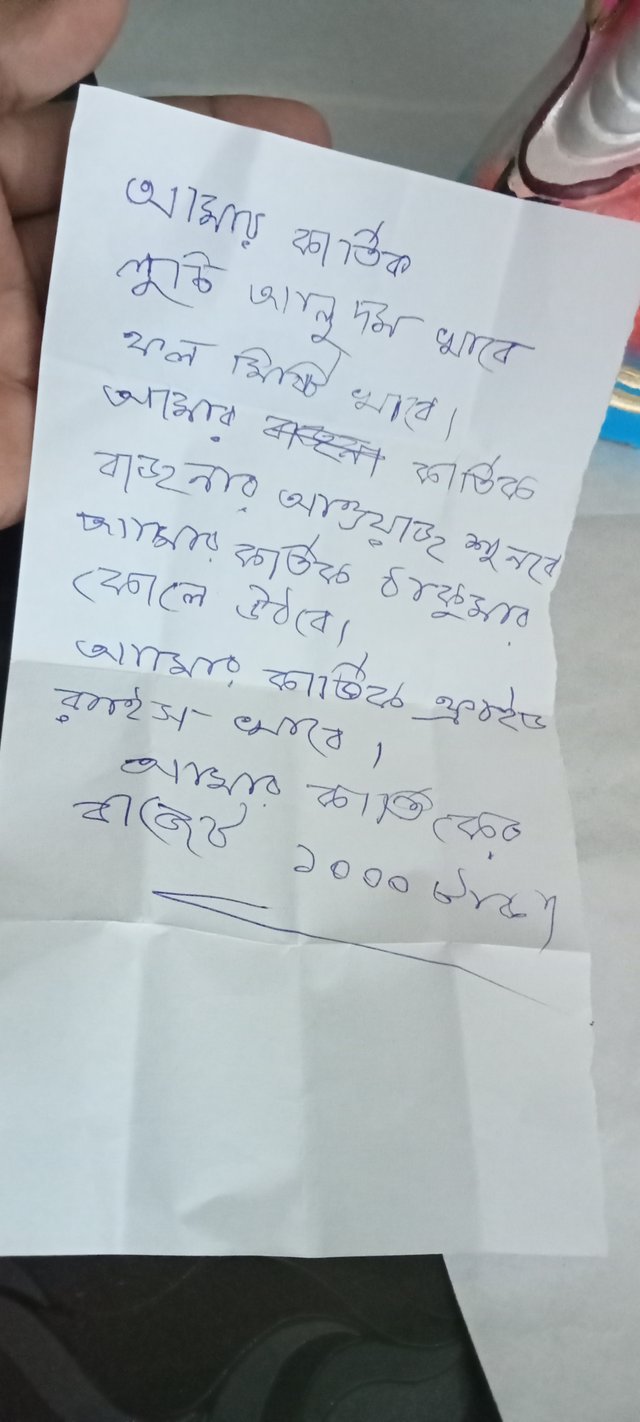 আমার কার্তিক
লুচি আলু দম খাবে
ফল মিষ্টি খাবে।
আমার কার্তিক
বাজনার আওয়াজ শুনবে
আমার কার্তিক ঠাকুমার
কোলে উঠবে।
আমার কার্তিক ফ্রাইড
রাইস খাবে।
আমার কার্তিকের
বাজেট ১০০০ টাকা